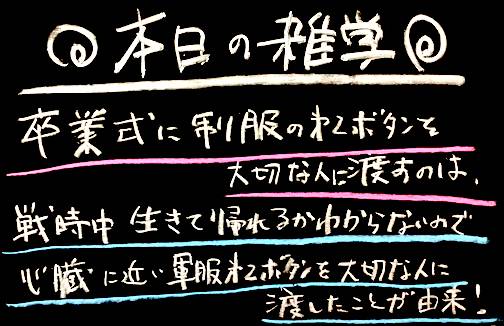 本日の雑学
卒業式に制服の第2ボタンを
大切な人に渡すのは、
戦時中 生きて帰れるかわからないので
心臓に近い軍服第2ボタンを大切な人に
渡したことが由来!